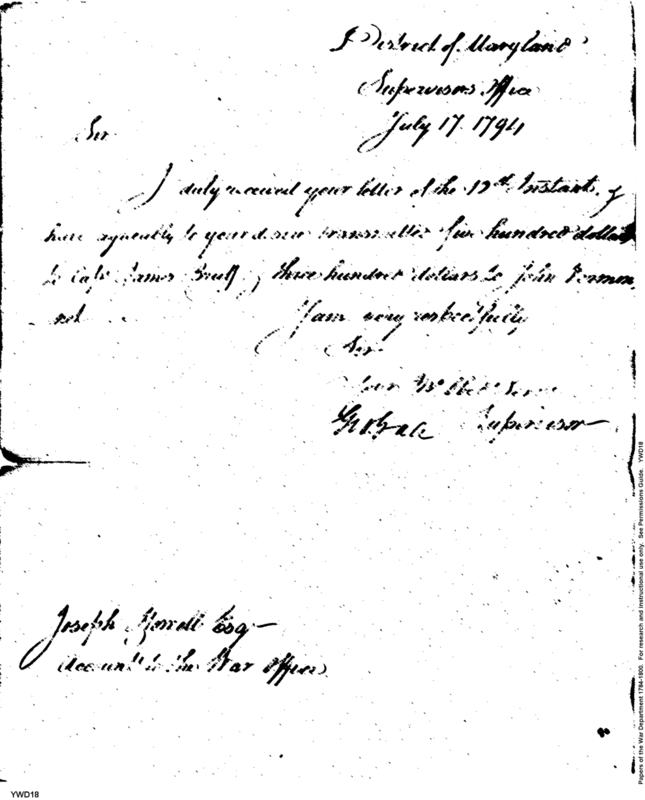 District of Maryland
Supervisors Office
July 17 1794
Sir
I duly received your letter of the 12th Instant, &
have agreeably to your desire transmitted five hundred dollars
to Capt James Bruff, & three hundred dollars to John
I am very respectfully
Sir
Your Obt Serv
Supervisor
Joseph Howell Esq
Accountt to the War Office
Papers of the War Department 1784-1800. For research and instructional use only. See Permissions Guide. YWD18
YWD18